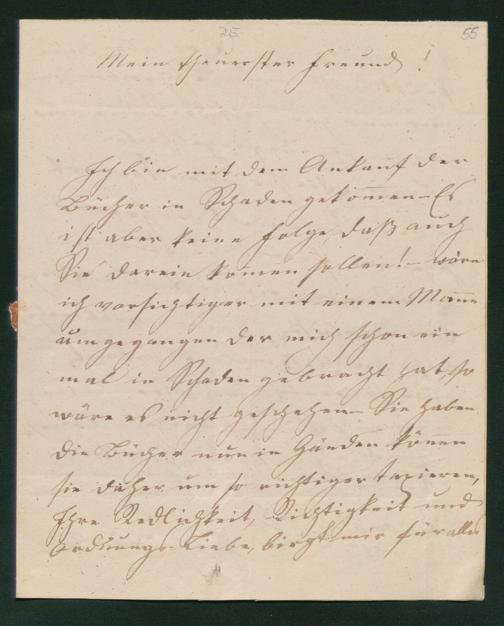 25 55
Mein theuerster Freund!
Ich bin mit dem Ankauf der
Bücher in Schaden gekom̄en – Es
ist aber keine Folge, daß auch
Sie darein kom̄en sollen! – wäre
ich vorsichtiger mit einem Manne
umgegangen der mich schon ein
mal in Schaden gebracht hat, so
wäre es nicht geschehen – Sie haben
die Bücher nun in Händen kön̄en
sie daher um so richtiger taxieren,
Ihre Redlichkeit, Richtigkeit und
Ordnungs-Liebe, birgt mir für alles